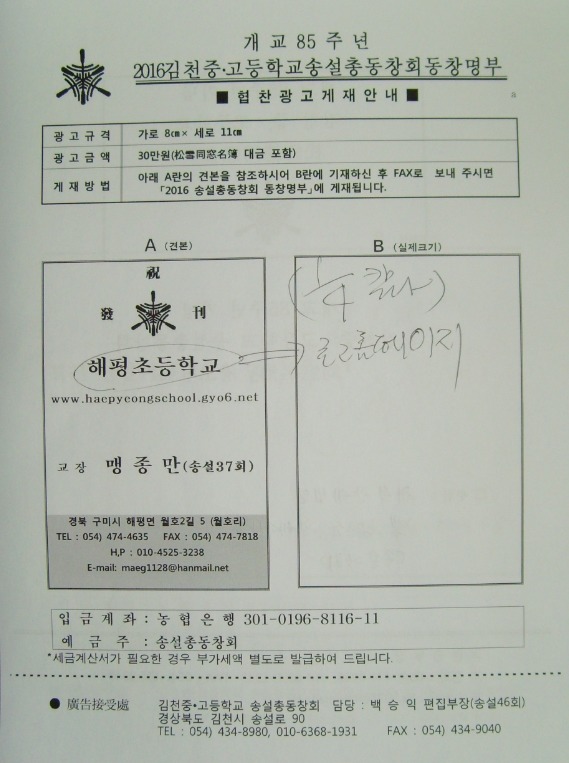 개교 85 주년
2016김천중·고등학교송설총동창회동창명부
■ 협찬광고게재안내 ■
광고규격 가로 8㎝× 세로 11㎝
광고금액 30만원(松雪同窓名簿 대금 포함)
게재방법 아래 A란의 견본을 참조하시어 B란에 기재하신 후 FAX로 보내 주시면
「2016 송설총동창회 동창명부」에 게재됩니다.
A (견본)
B (실제크기)
祝
發 刊
해평초등학교
www.haepyeongschool.gyo6.net
교장 맹종만(송설37회)
경북 구미시 해평면 월호2길 5 (월호리)
TEL : 054) 474-4635 FAX : 054) 474-7818
H,P : 010-4525-3238
E-mail: maeg1128@hanmail.net
입금계좌 : 농협은행 301-0196-8116-11
예금주 : 송설총동창회
*세금계산서가 필요한 경우 부가세액 별도로 발급하여 드립니다.
● 廣告接受處 김천중·고등학교 송설총동창회 담당 : 백승익 편집부장(송설46회)
경상북도 김천시 송설로 90
TEL : 054) 434-8980, 010-6368-1931 FAX : 054) 434-9040